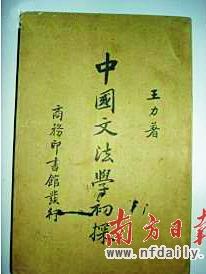 王力著
中國文法學初探
商務印書館發行
南方日報
www.nfdaily.cn